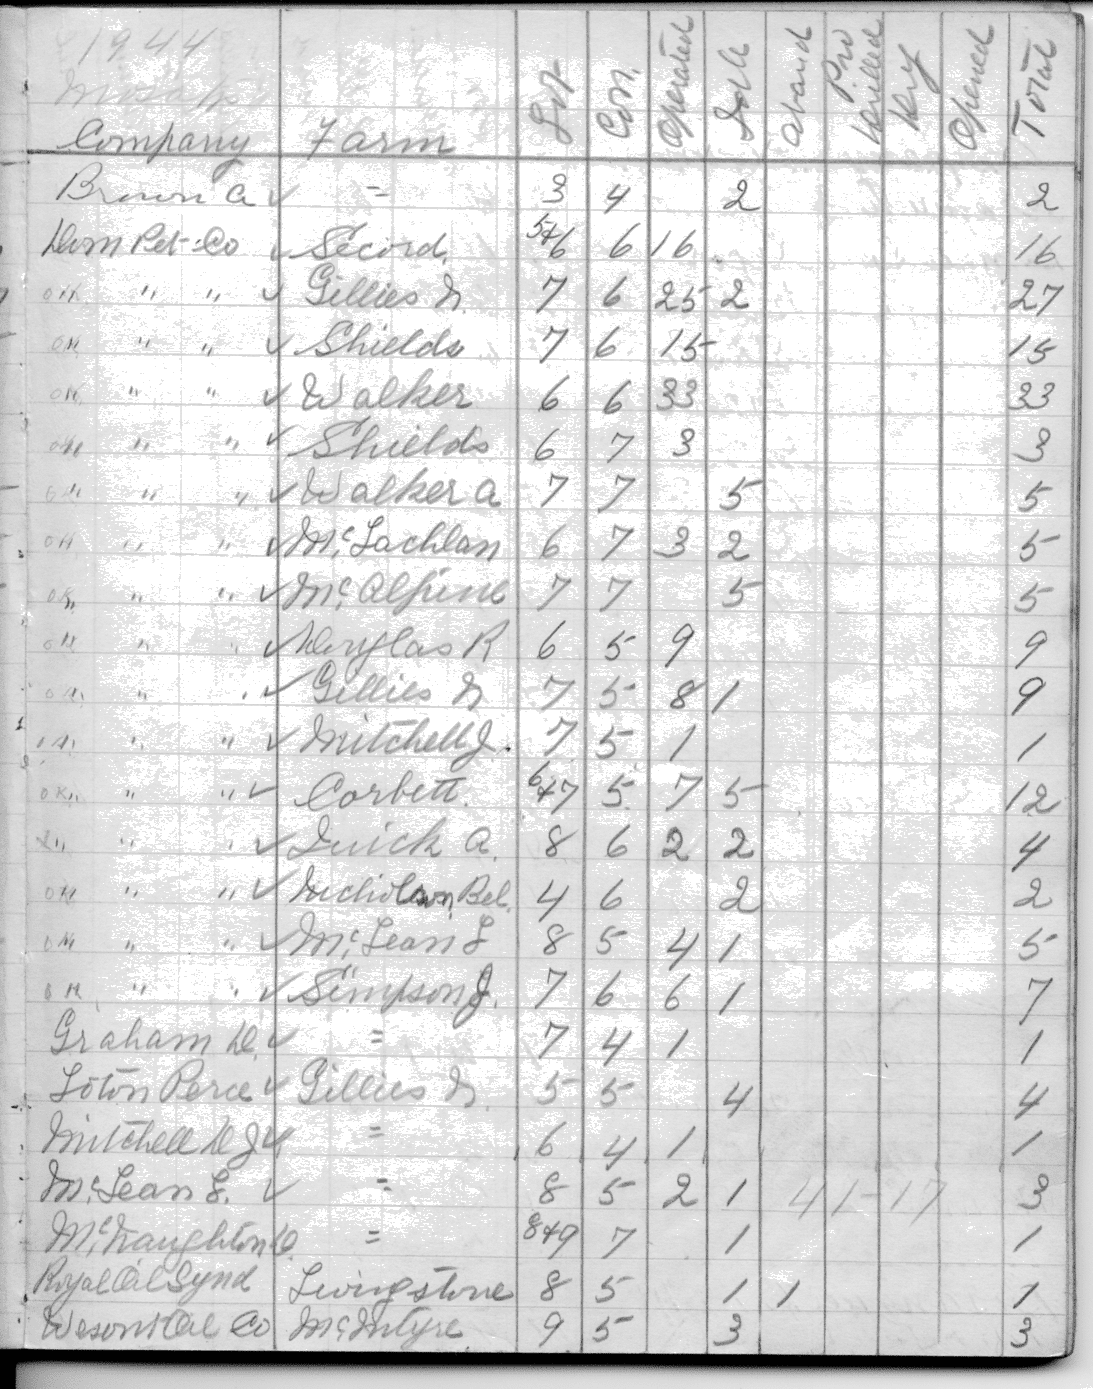 1944
Mosa
Company Farm Lot Con. Operated Idle Aband Pro Drilled Dry Opened Total
Brown A ✓ = 3 4 2 2
Dom Pet. Co ✓ Secord. 5+6 6 16 16
OK " " ✓ Gillies N. 7 6 25 2 27
OK " " ✓ Shields 7 6 15 15
OK " " ✓ Walker 6 6 33 33
OK " " ✓ Shields 6 7 3 3
OK " " ✓ Walker A 7 7 5 5
OK " " ✓ McLachlan 6 7 3 2 5
OK " " ✓ McAlpine 7 7 5 5
OK " " ✓ Douglas R 6 5 9 9
OK " " ✓ Gillies N 7 5 8 1 9
OK " " ✓ Mitchell J. 7 5 1 1
OK " " ✓ Corbett. 6+7 5 7 5 12
" " ✓ Quick A. 8 6 2 2 4
OK " " ✓ Nicholson Bel. 4 6 2 2
OK " " ✓ McLean L 8 5 4 1 5
OK " " ✓ Simpson J. 7 6 6 1 7
Graham D. ✓ = 7 4 1 1
Loton Perce ✓ Gillies N. 5 5 4 4
Mitchell D J ✓ = 6 4 1 1
McLean L. ✓ = 8 5 2 1 41-17 3
McNaughton D. = 8+9 7 1 1
Royal Oil Synd Livingstone 8 5 1 1 1
Oil Co McIntyre 9 5 3 3